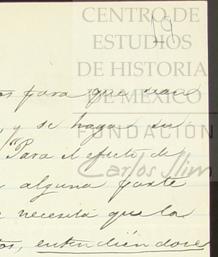 CENTRO DE
ESTUDIOS
DE HISTORIA
DE MÉXICO
FUNDACIÓN
Carlos Slim
19
para que sean
y se haga su
"Para el efecto de
alguna parte
necesita que la
entendiéndose